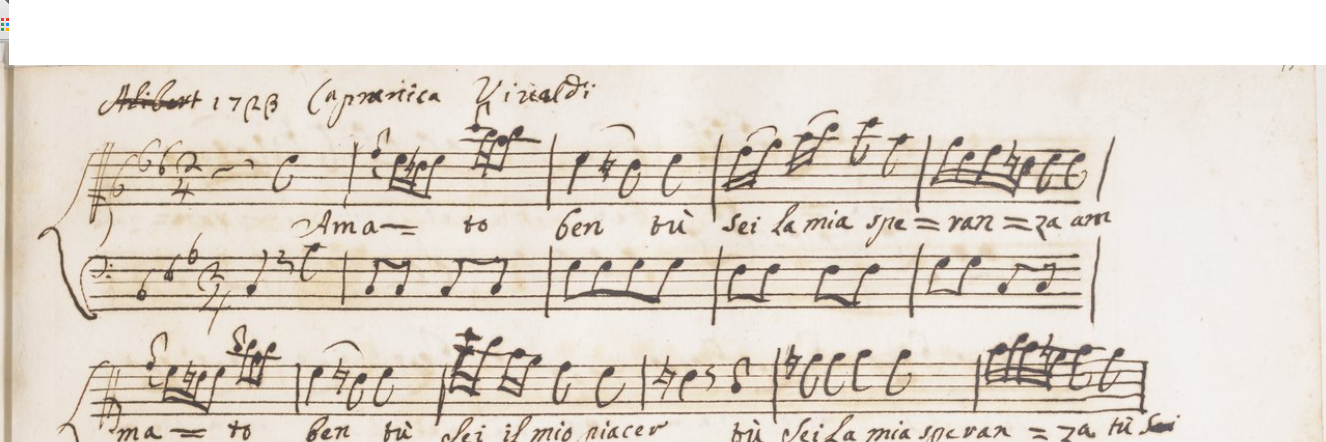 Alibert 1723 Capranica Vivaldi
Ama= to ben tù sei la mia spe=ran=za am
ma = to ben tù sei il mio piacer tù sei la mia speran = za tù sei